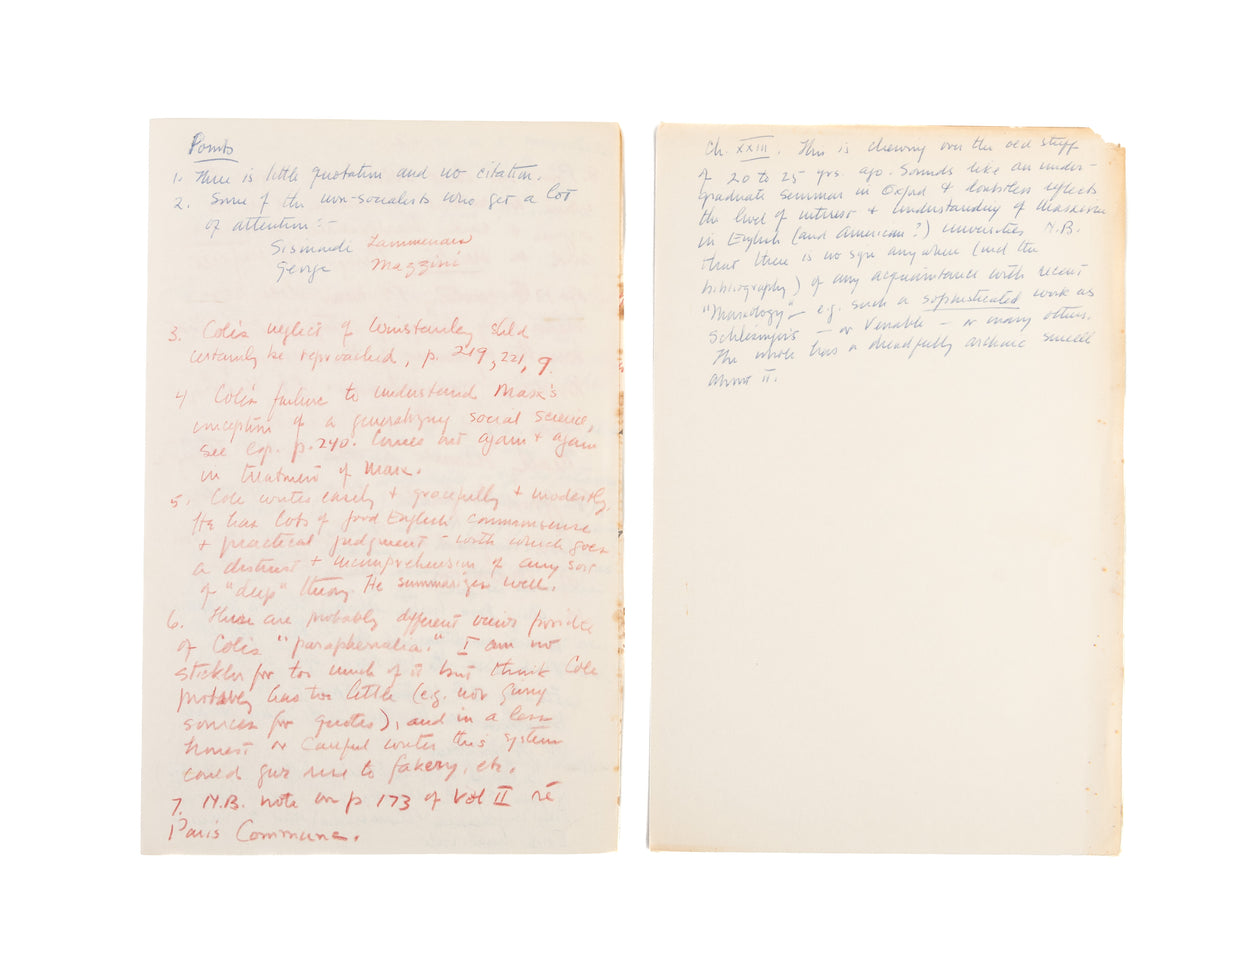 Points
1. There is little quotation and no citation.
2. Some of the non-socialists who get a lot
of attention:-
Sismondi Lammenais
George Mazzini
3. Cole's neglect of Winstanley shld
certainly be reproached, p. 219, 221, 9.
4 Cole's failure to understand Marx's
conception of a generalizing social science,
see esp. p. 240. Comes out again + again
in treatment of Marx.
5. Cole writes easily + gracefully + modestly.
He has lots of good English commonsense
+ practical judgment - with which goes
a distrust + incomprehension of any sort
of "deep" theory. He summarizes well.
6. There are probably different views possible
of Cole's "paraphernalia." I am no
stickler for too much of it but think Cole
probably has too little (e.g. not giving
sources for quotes), and in a less
honest or careful writer this system
could give rise to fakery, etc.
7. N.B. note on p 173 of Vol II re
Paris Commune.
Ch. XXIII. This is chewing over the old stuff
of 20 to 25 yrs. ago. Sounds like an under-
graduate seminar in Oxford + doubtless reflects
the level of interest + understanding of Marxism
in English (and American?) universities N.B.
that there is no sign anywhere (incl the
bibliography) of any acquaintance with recent
"Marxology" - e.g. such a sophisticated work as
Schlesinger's - or Venable - or many others.
The whole has a dreadfully archaic smell
about it.